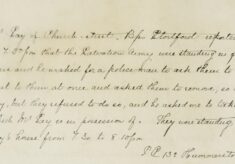 Kay of Church Street, Bps Stortford reported
4.30pm that the Salvation Army were standing in
and he asked for a police man to ask them to
to them at one, and asked them to remove, so
but they refused to do so, and he asked me to take
Mr Key in possession of. They were standing
house from 7.30 to 8.10pm
P.C. 132